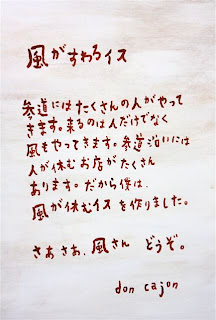 風がすわるイス
参道にはたくさんの人がやって
きます。来るのは人だけでなく
風もやってきます。参道沿いには
人が休むお店がたくさん
あります。だから僕は、
風が休むイスを作りました。
さあさあ、風さん どうぞ。
don cajon